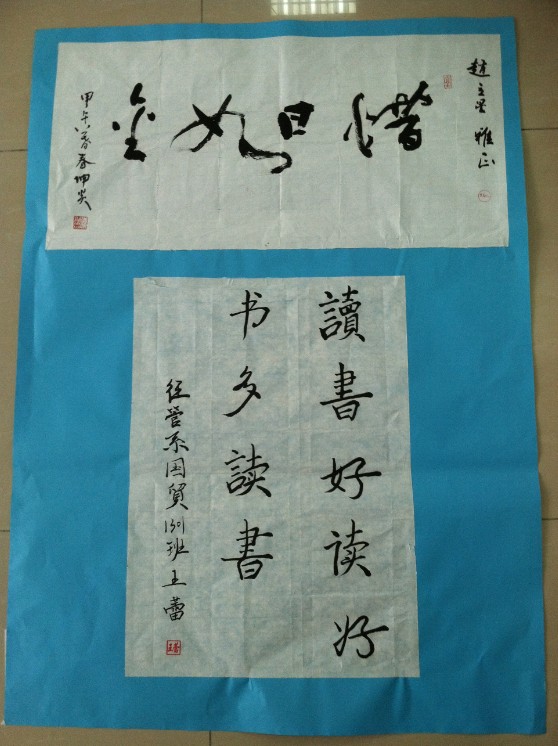 趙立 雅正
惜日如金
甲午 春
讀書好读好
书多読書
经营系国貿1301班王蕾